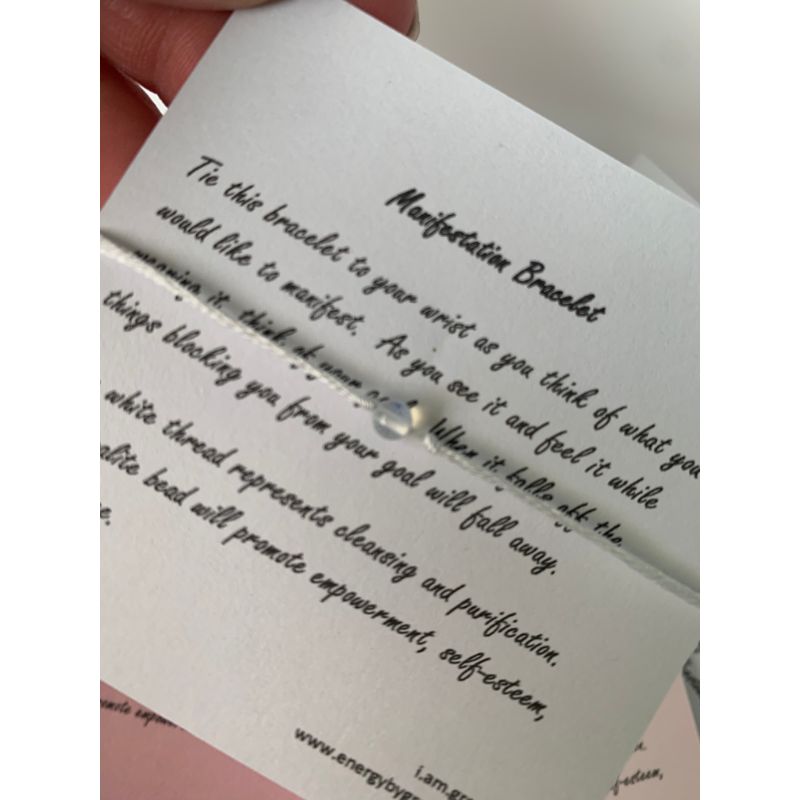 Manifestation Bracelet
Tie this bracelet to your wrist as you think of what you
would like to manifest. As you see it and feel it while
it, think of your When it falls off the
things blocking you from your goal will fall away.
white thread represents cleansing and purification.
bead will promote empowerment, self-esteem,
i.am.gr
www.energybyg